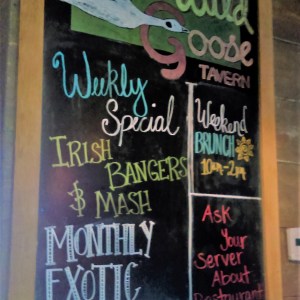 Wild
Goose
TAVERN
Weekly
Special
IRISH
BANGERS
$ MASH
MONTHLY
EXOTIC
Weekend
BRUNCH
10am-2pm
Ask
Your
Server
About
Restaurant